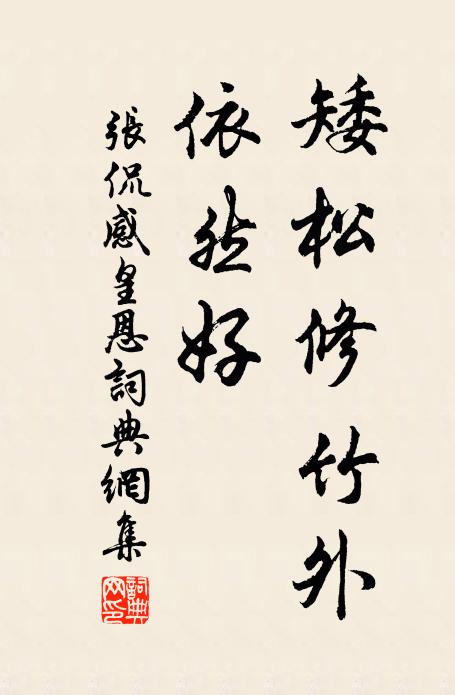 矮松修竹外
依然好
張侃感皇恩詞典網集
詞典網印